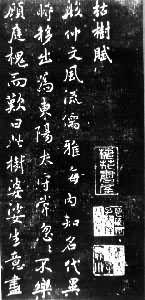 枯樹賦
殷仲文風流儒雅海內知名代異
時移出為東陽太守常忽〻不樂
顧庭槐而歎曰此樹婆娑生意盡